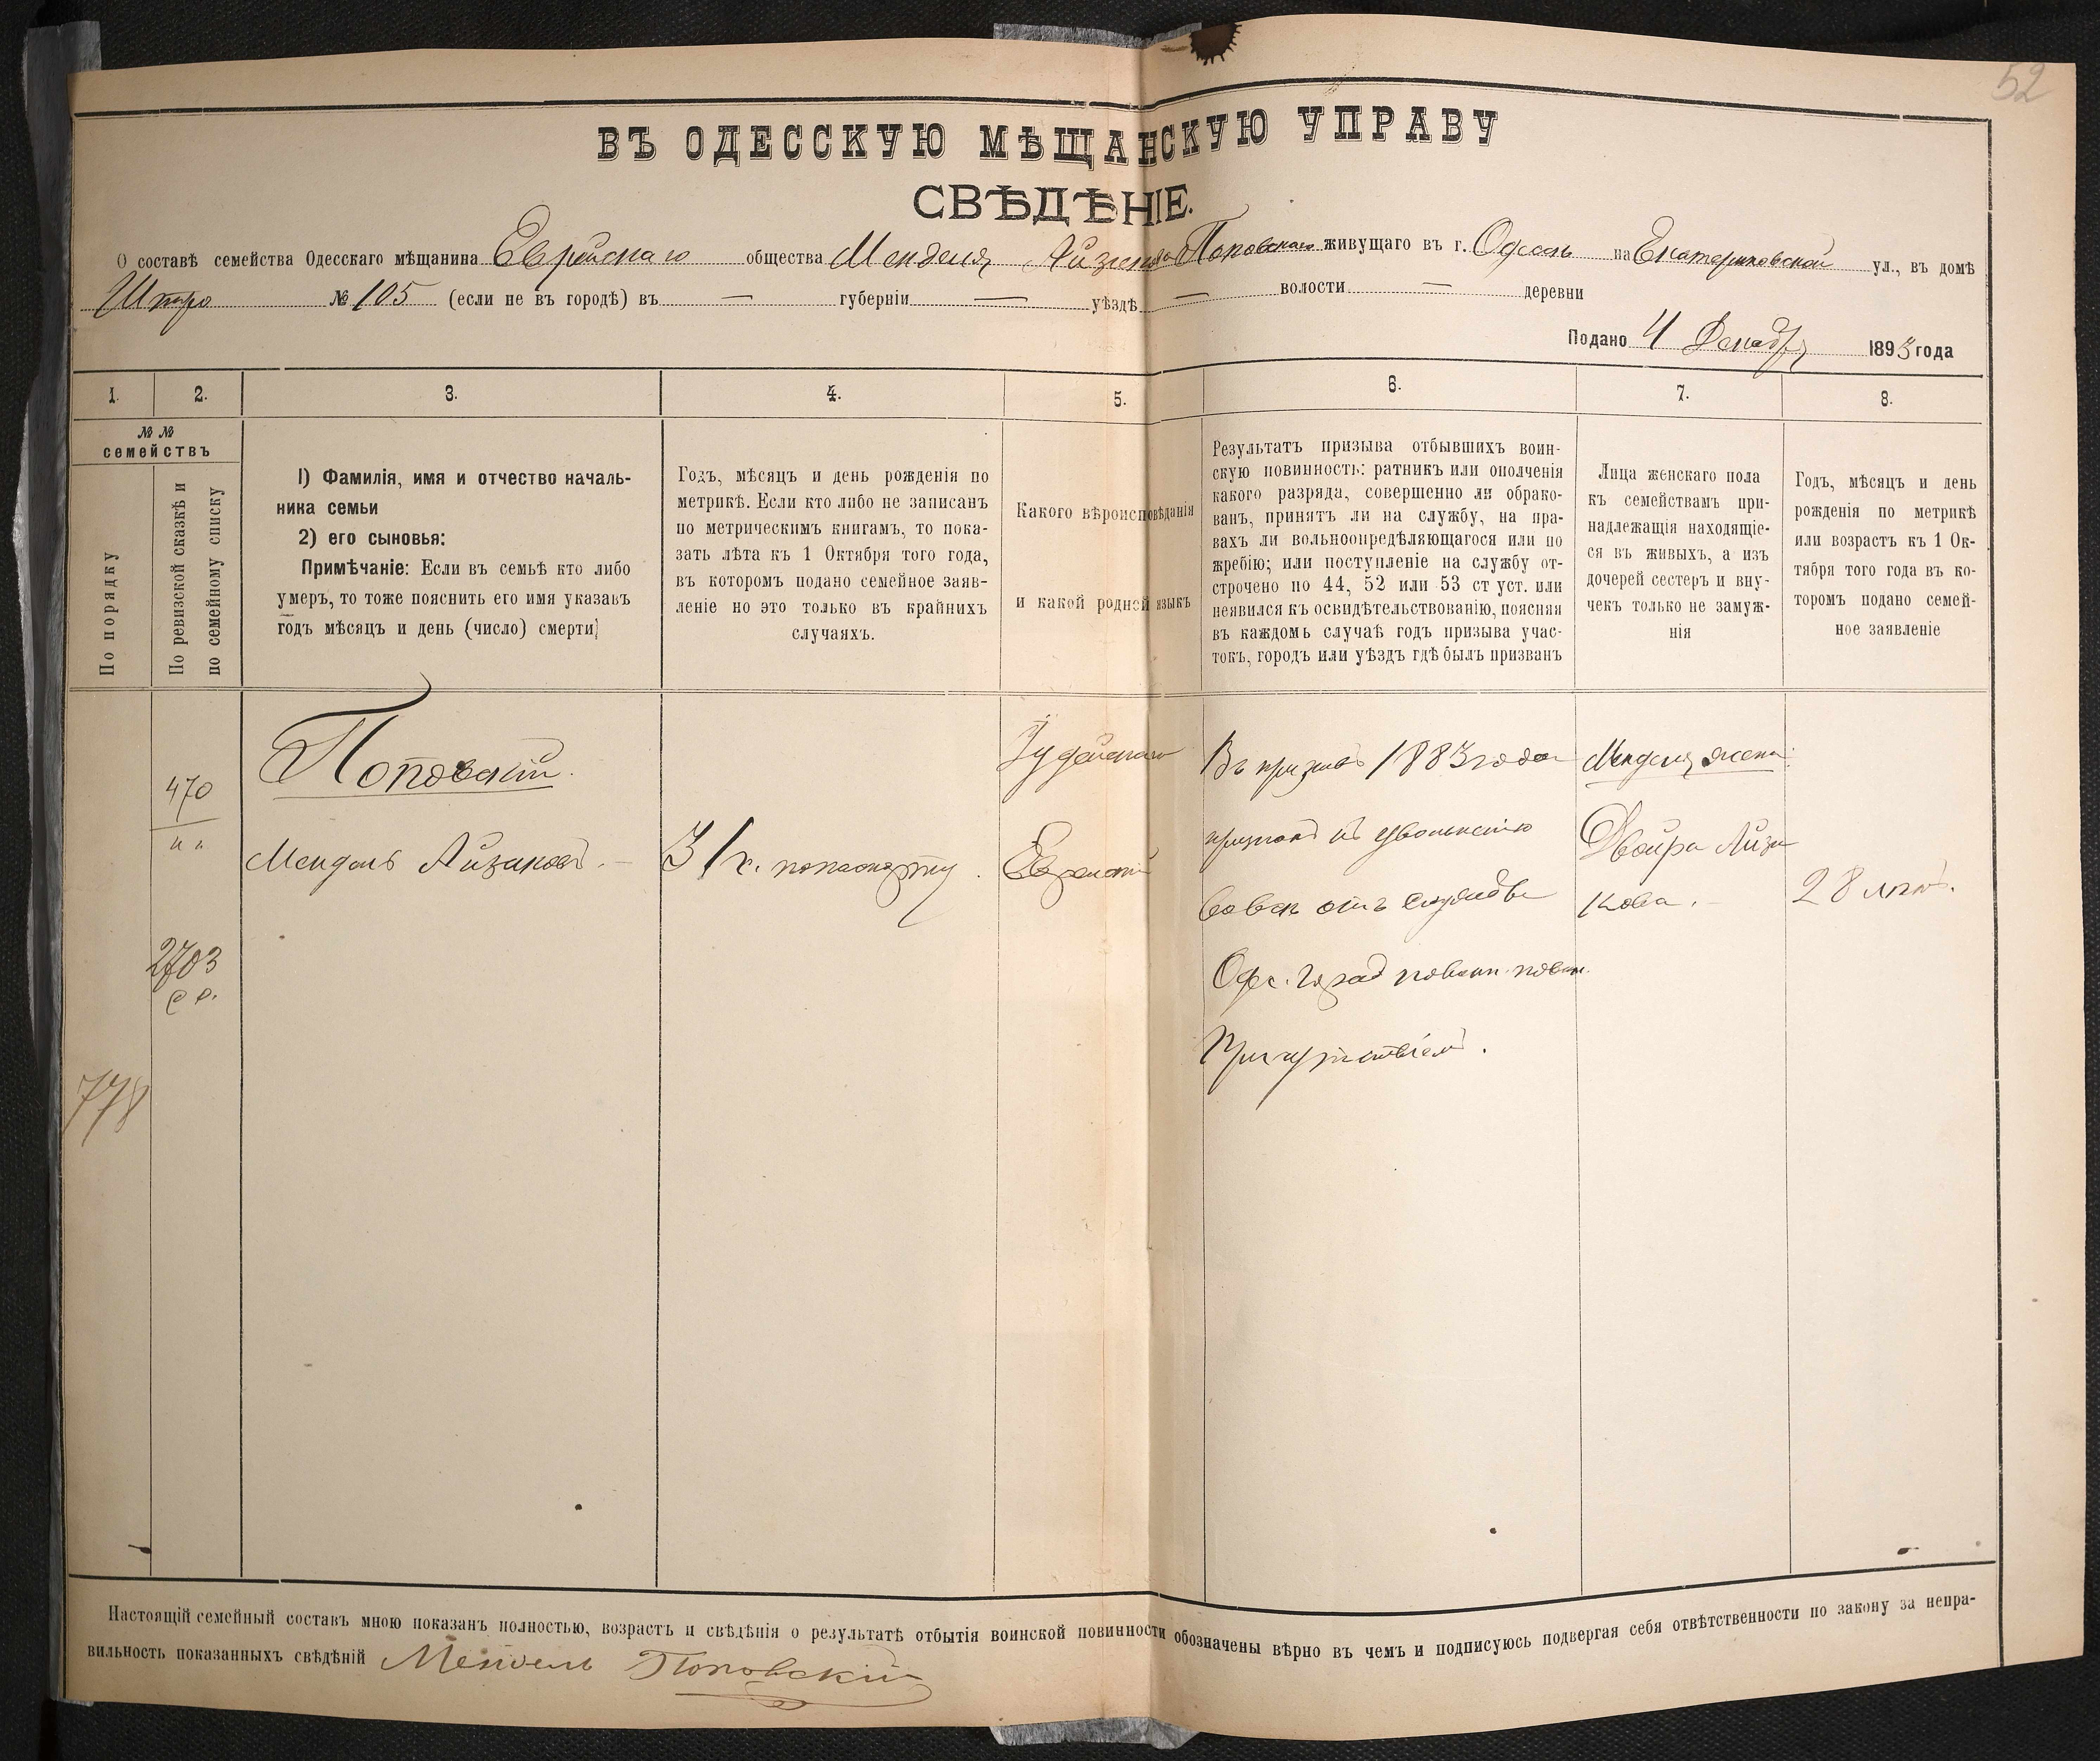 52
ВЪ ОДЕССКУЮ МѢЩАНСКУЮ УПРАВУ
СВѢДѢНІЕ.
О составѣ семейства Одесскаго мѣщанина Еврейскаго общества Менделя Айзикова Поповскаго живущаго въ г. Одессѣ на Екатериновской ул., въ домѣ
№ 105 (если не въ городѣ) въ — губерніи — уѣздѣ — волости — деревни
Подано 4 Декабря 1893 года
1. 2. 3. 4. 5. 6. 7. 8.
№ №
семействъ
По порядку
По ревизской сказкѣ и
по семейному списку
1) Фамилія, имя и отчество началь-
ника семьи
2) его сыновья:
Примѣчаніе: Если въ семьѣ кто либо
умеръ, то тоже пояснить его имя указавъ
годъ мѣсяцъ и день (число) смерти)
Годъ, мѣсяцъ и день рожденія по
метрикѣ. Если кто либо не записанъ
по метрическимъ книгамъ, то пока-
зать лѣта къ 1 Октября того года,
въ которомъ подано семейное заяв-
леніе но это только въ крайнихъ
случаяхъ.
Какого вѣроисповѣданія
и какой родной языкъ
Результатъ призыва отбывшихъ воин-
скую повинность: ратникъ или ополченія
какого разряда, совершенно ли обрако-
ванъ, принятъ ли на службу, на пра-
вахъ ли вольноопредѣляющагося или по
жребію; или поступленіе на службу от-
строчено по 44, 52 или 53 ст уст. или
неявился къ освидѣтельствованію, поясняя
въ каждомъ случаѣ годъ призыва учас-
токъ, городъ или уѣздъ гдѣ былъ призванъ
Лица женскаго пола
къ семействамъ при-
надлежащія находящіе-
ся въ живыхъ, а изъ
дочерей сестеръ и вну-
чекъ только не замуж-
нія
Годъ, мѣсяцъ и день
рожденія по метрикѣ
или возрастъ къ 1 Ок-
тября того года въ ко-
торомъ подано семей-
ное заявленіе
470
2703
778
Поповскій.
Мендель Айзиковъ.
31 г. по паспорту.
Іудейскаго
Еврейскій
Въ призывъ 1883 года
признанъ къ
вовсе отъ службы
Одес. Город повоин. повин.
Присутствіемъ.
Менделя жена:
Двойра Айзи
кова.
28 лѣтъ.
Настоящій семейный составъ мною показанъ полностью, возрастъ и свѣдѣнія о результатѣ отбытія воинской повинности обозначены вѣрно въ чемъ и подписуюсь подвергая себя отвѣтственности по закону за непра-
вильность показанныхъ свѣдѣній Мендель Поповскій